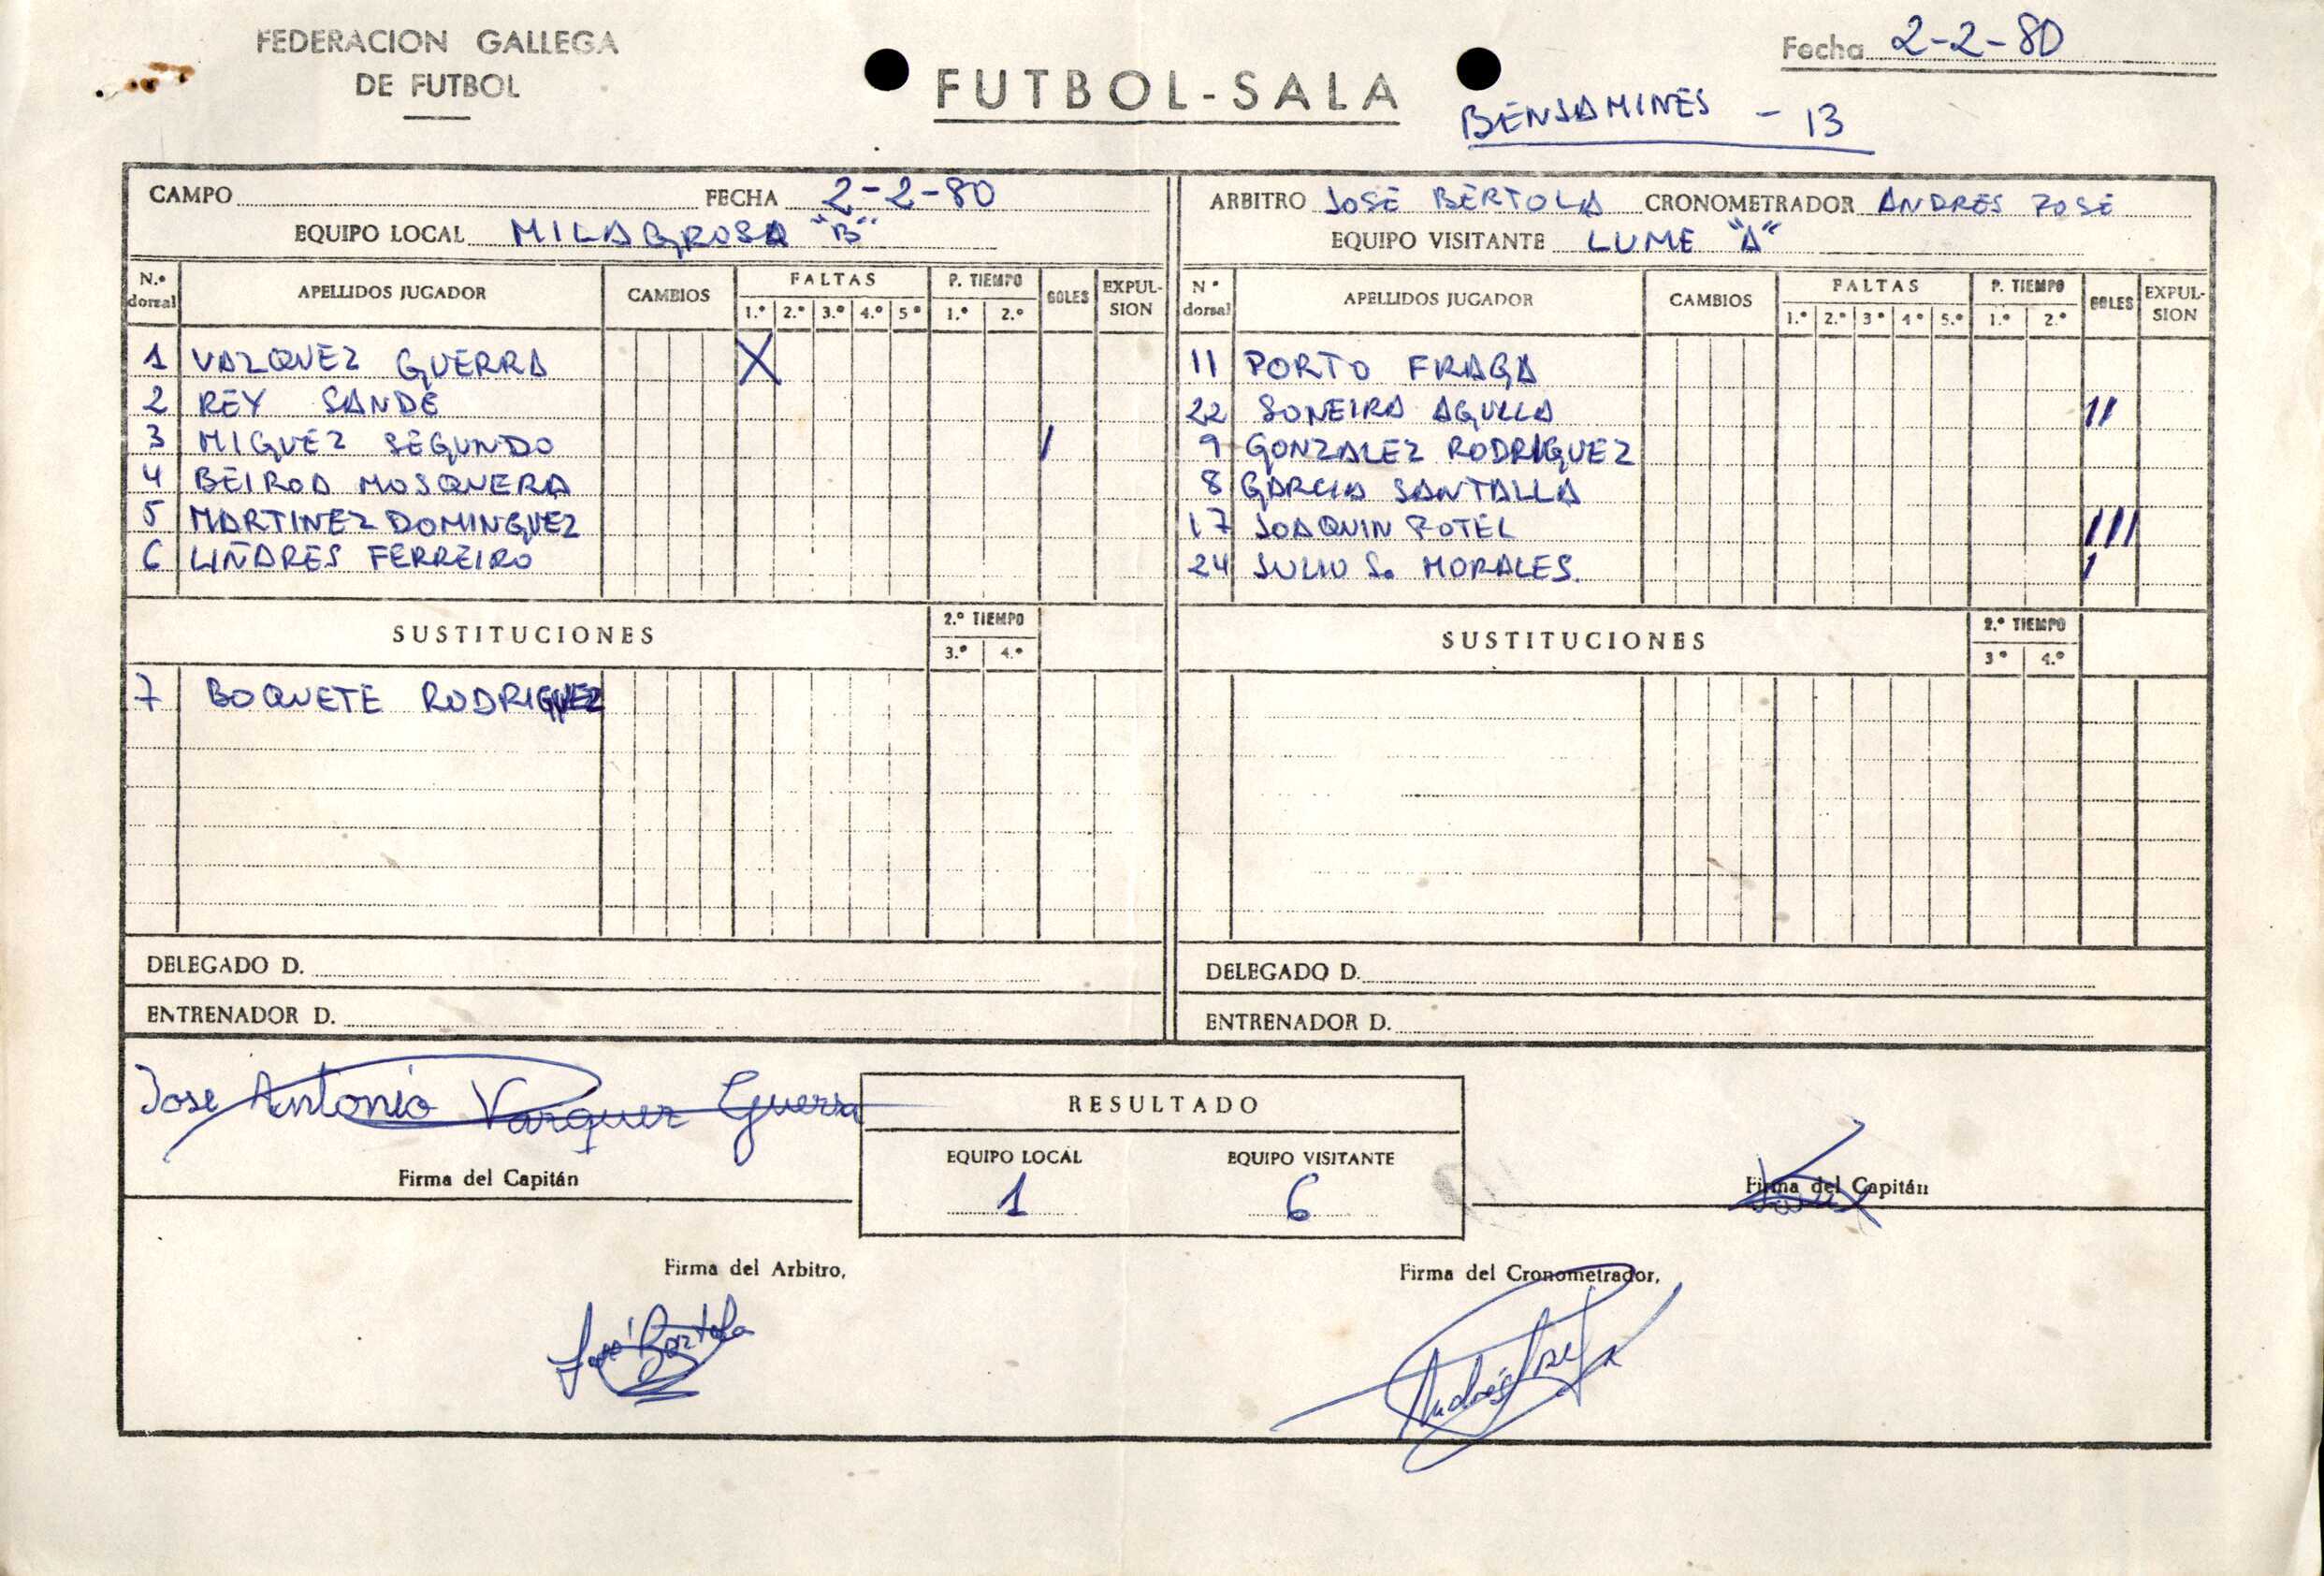 FEDERACION GALLEGA
DE FUTBOL
FUTBOL-SALA
Fecha 2-2-80
BENJAMINES - 13
CAMPO FECHA 2-2-80
EQUIPO LOCAL MILAGROSA "B"
ARBITRO JOSE BERTOLA CRONOMETRADOR ANDRES JOSE
EQUIPO VISITANTE LUME "A"
N.º dorsal APELLIDOS JUGADOR CAMBIOS FALTAS 1.º 2.º 3.º 4.º 5º P. TIEMPO 1.º 2.º GOLES EXPULSION
1 VAZQUEZ GUERRA X
2 REY SANDE
3 MIGUEZ SEGUNDO /
4 BEIROA MOSQUERA
5 MARTINEZ DOMINGUEZ
6 LIÑARES FERREIRO
SUSTITUCIONES 2.º TIEMPO 3.º 4.º
7 BOQUETE RODRIGUEZ
DELEGADO D.
ENTRENADOR D.
Nº dorsal APELLIDOS JUGADOR CAMBIOS FALTAS 1.º 2.º 3º 4º 5.º P. TIEMPO 1.º 2.º GOLES EXPULSION
11 PORTO FRAGA
22 SONEIRA AGULLA //
9 GONZALEZ RODRIGUEZ
8 GARCIA SANTALLA
17 JOAQUIN POTEL ///
24 JULIO S. MORALES. /
SUSTITUCIONES 2.º TIEMPO 3º 4.º
DELEGADO D.
ENTRENADOR D.
Jose Antonio Vazquez Guerra
Firma del Capitán
RESULTADO
EQUIPO LOCAL EQUIPO VISITANTE
1 6
Firma del Capitán
Firma del Arbitro,
José Bertola
Firma del Cronometrador,
Andrés José